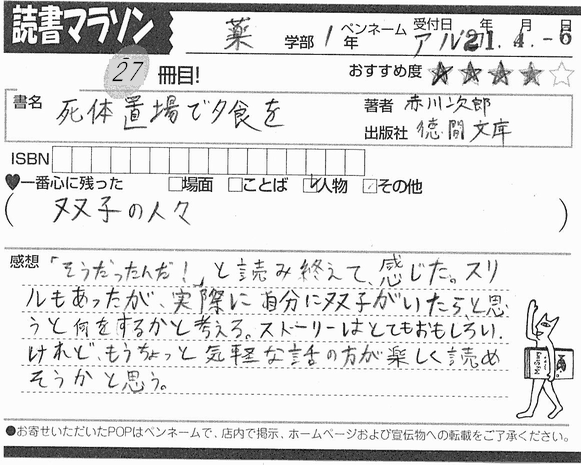 読書マラソン
薬 学部 1年 ペンネーム アルク 受付日 21年4月-6日
27 冊目!
おすすめ度 ★★★★☆
書名 死体置場で夕食を
著者 赤川次郎
出版社 徳間文庫
ISBN
♥一番心に残った □場面 □ことば ☑人物 ☑その他
(双子の人々)
感想 「そうだったんだ!」と読み終えて、感じた。スリ
ルもあったが、実際に自分に双子がいたらと思
うと何をするかと考える。ストーリーはとてもおもしろい
けれど、もうちょっと気軽な話の方が楽しく読め
そうかと思う。
●お寄せいただいたPOPはペンネームで、店内で掲示、ホームページおよび宣伝物への転載をご了承ください。